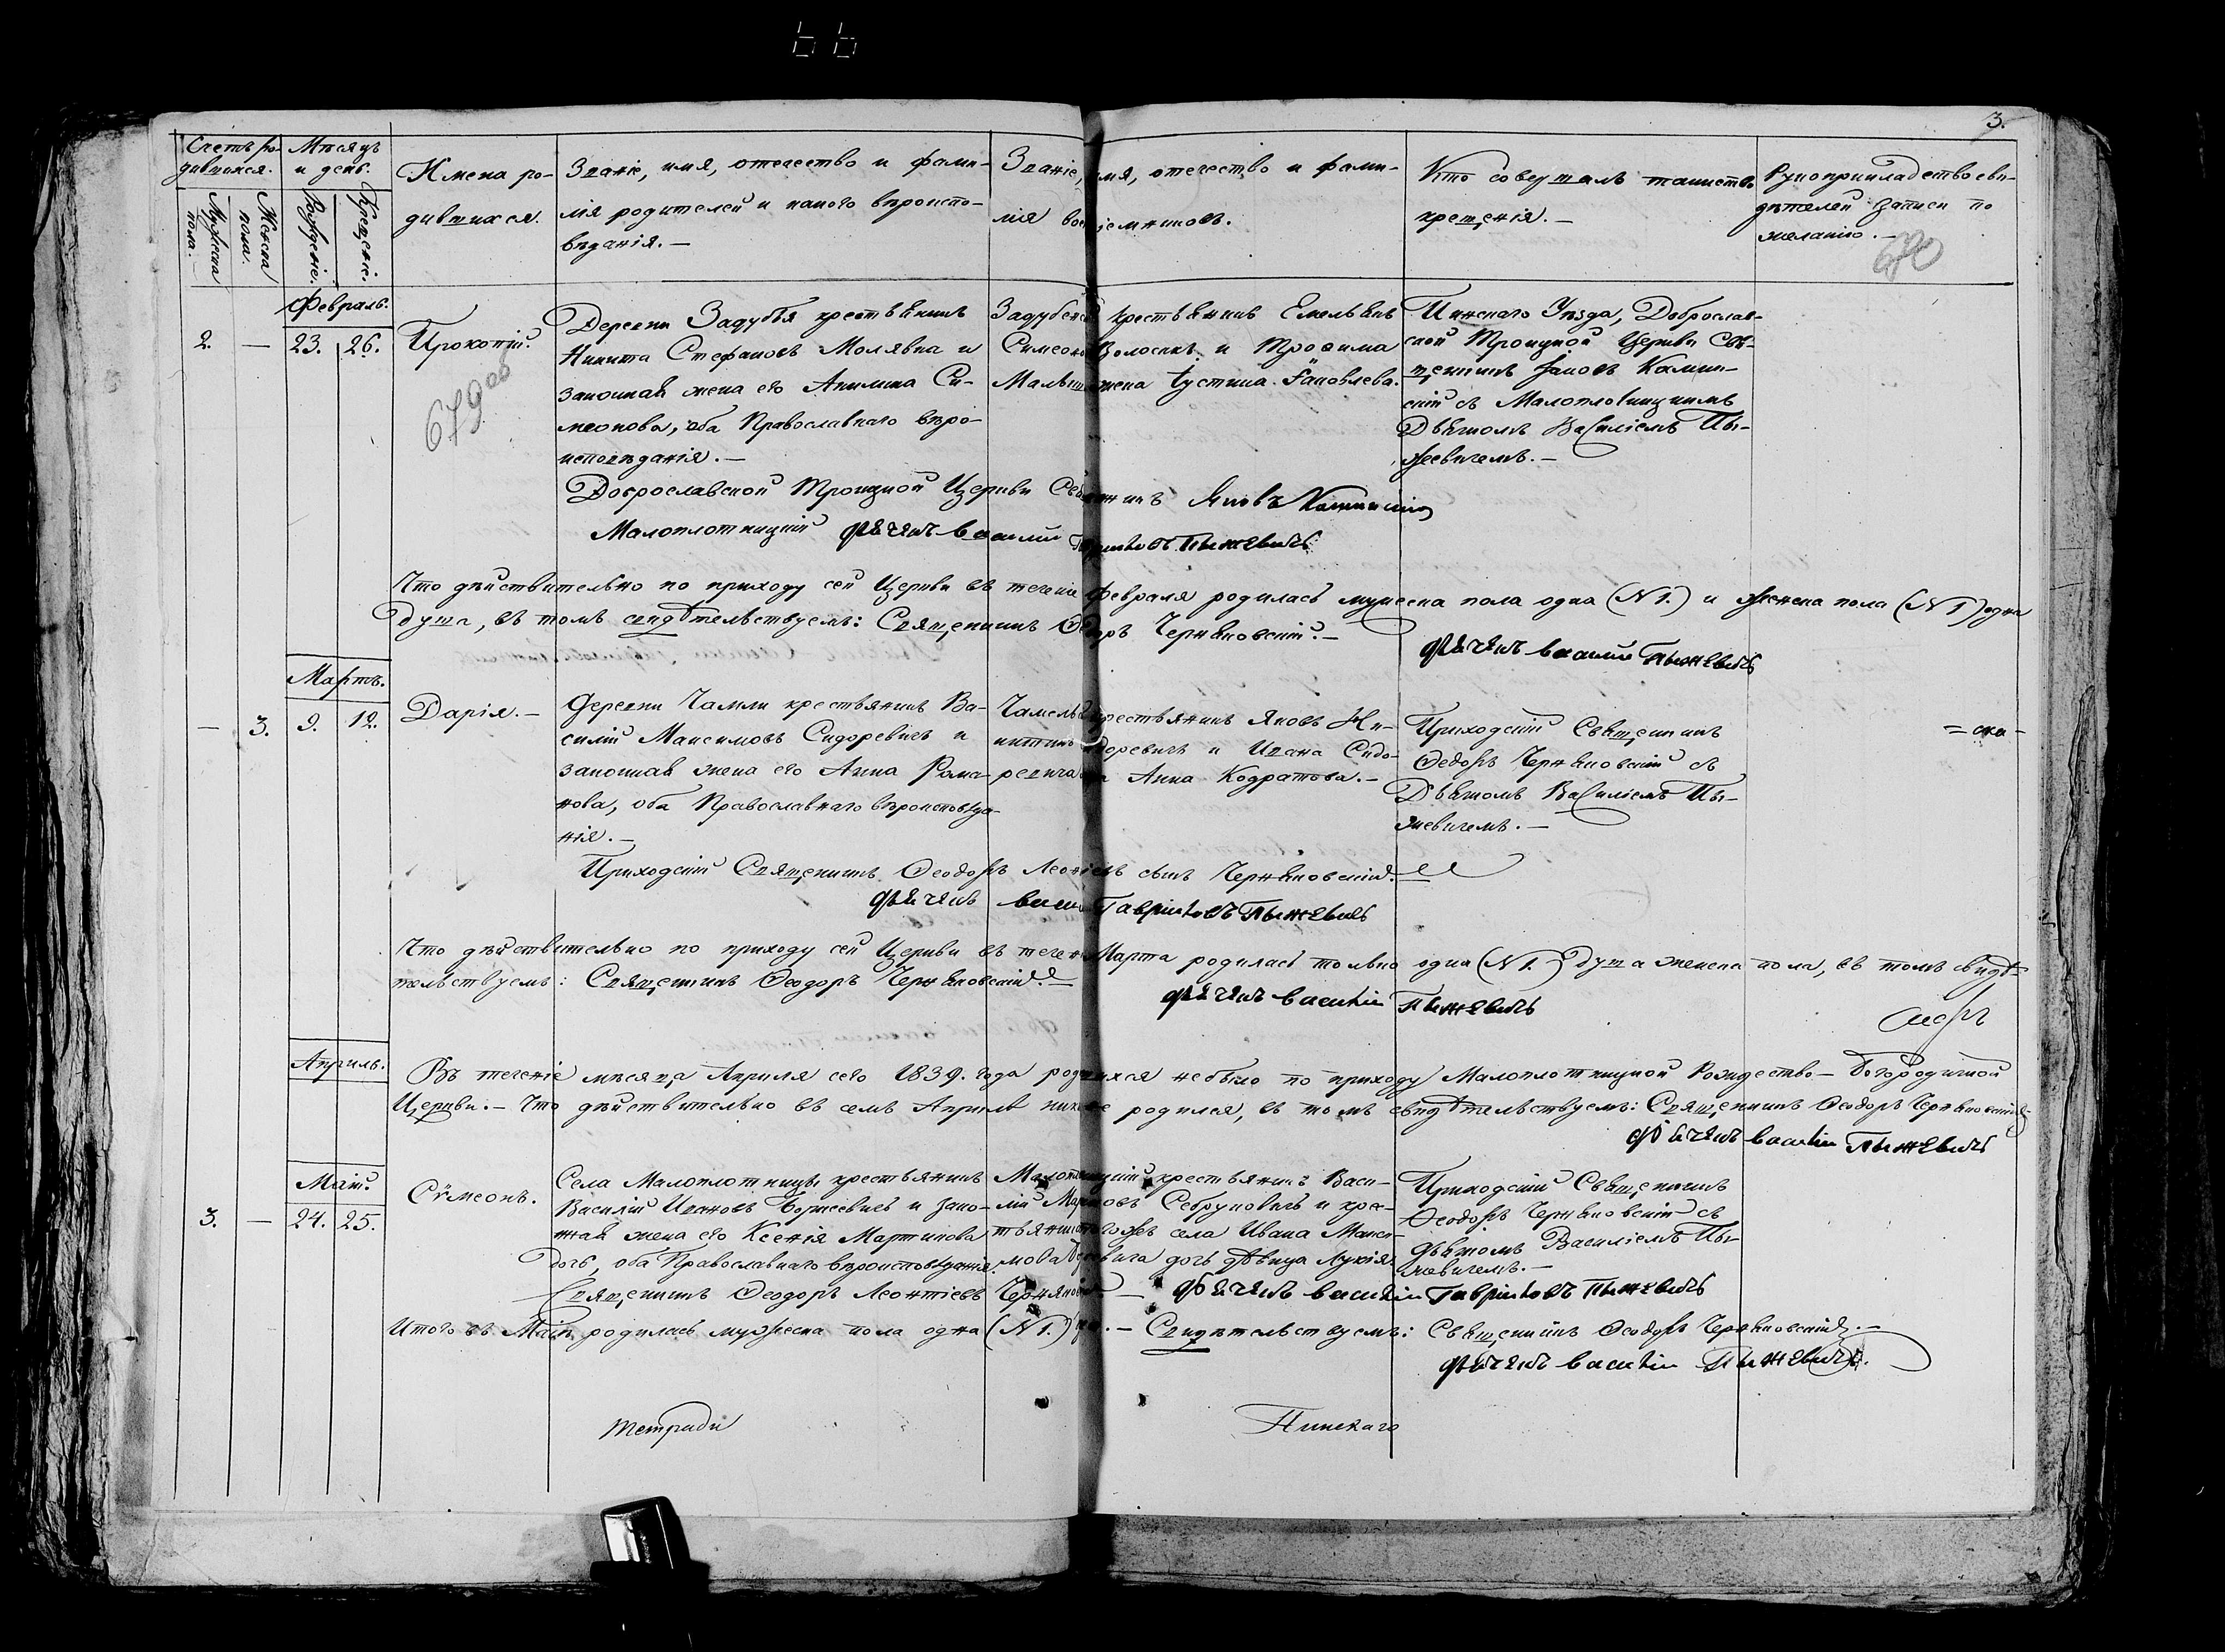 3.
Счетъ ро-
дившихся.
Мѣсяцъ
и день.
Мужеска
пола.
Женска
пола.
Рожденіе.
Крещеніе.
Имена ро-
дившихся.
Званіе, имя, отечество и фами-
лія родителей и какого вѣроиспо-
вѣданія.—
Званіе, имя, отечество и фами-
лія воспріемниковъ.
Кто совершалъ таинство
крещенія.—
Рукоприкладство сви-
дѣтелей записи по
желанію.—
680
Февраль.
2. — 23. 26.
Прокопій.
679 об
Деревни Задубья крестьянинъ
Никита Стефановъ Молявка и
законная жена его Акилина Си-
меонова, оба Православнаго вѣро-
исповѣданія.—
Задубенскій крестьянинъ Емельянъ
Симеоновъ Волосикъ и Трофима
жена Іустина Іаковлева.
Пинскаго Уѣзда, Доброслав-
ской Троицкой Церкви Свя-
щенникъ Іаковъ Камин-
скій съ Малоплотницкимъ
Дьячкомъ Василіемъ Пы-
жевичемъ.—
Доброславской Троицкой Церкви Священникъ Яковъ Каминскій
Малоплотницкій Дьячекъ Василій Гавриловъ Пыжевичъ
Что дѣйствительно по приходу сей Церкви въ теченіе Февраля родилась мужеска пола одна (N 1.) и женска пола (N 1) одна
душа, въ томъ свидѣтельствуемъ: Священникъ Ѳеодоръ Черняковскій.—
Дьячекъ Василій Пыжевичъ
Мартъ.
— 3. 9. 12.
Дарія.—
Деревни Чамли крестьянинъ Ва-
силій Максимовъ Сидоревичъ и
законная жена его Анна Рома-
нова, оба Православнаго вѣроисповѣда-
нія.—
крестьянинъ Яковъ Ни-
китинъ Сидоревичъ и Ивана Сидо-
ревича жена Анна Кодратова.—
Приходскій Священникъ
Ѳеодоръ Черняковскій съ
Дьячкомъ Василіемъ Пы-
жевичемъ.—
= ска-
Приходскій Священникъ Ѳеодоръ Леонтіевъ сынъ Черняковскій.
Дьячекъ Василій Гавриловъ Пыжевичъ
Что дѣйствительно по приходу сей Церкви въ теченіе Марта родилась только одна (N 1.) душа женска пола, въ томъ свидѣ-
тельствуемъ: Священникъ Ѳеодоръ Черняковскій.—
Дьячекъ Василій Пыжевичъ
Апрѣль.
Въ теченіе мѣсяца Апрѣля сего 1839. года родившихся небыло по приходу Малоплотницкой Рождество-Богородичной
Церкви.— Что дѣйствительно въ семъ Апрѣлѣ никто не родился, въ томъ свидѣтельствуемъ: Священникъ Ѳеодоръ Черняковскій
Дьячекъ Василій Пыжевичъ
Май.
3. — 24. 25.
Сѵмеонъ.
Села Малоплотницы крестьянинъ
Василій Ивановъ Боричевичъ и зако-
нная жена его Ксенія Мартинова
дочь, оба Православнаго вѣроисповѣданія.
Малоплотницкій крестьянинъ Васи-
лій Марковъ Себруковичъ и крес-
тьянина тогожъ села Ивана Макси-
мова дочь дѣвица Лукія.
Приходскій Священникъ
Ѳеодоръ Черняковскій съ
Дьячкомъ Василіемъ Пы-
жевичемъ.—
Священникъ Ѳеодоръ Леонтіевъ Черняковскій — Дьячекъ Василій Гавриловъ Пыжевичъ
Итого въ Маіѣ родилась мужеска пола одна (N 1.) душа.— Свидѣтельствуемъ: Священникъ Ѳеодоръ Черняковскій.—
Дьячекъ Василій Пыжевичъ.
тетради
Пинскаго